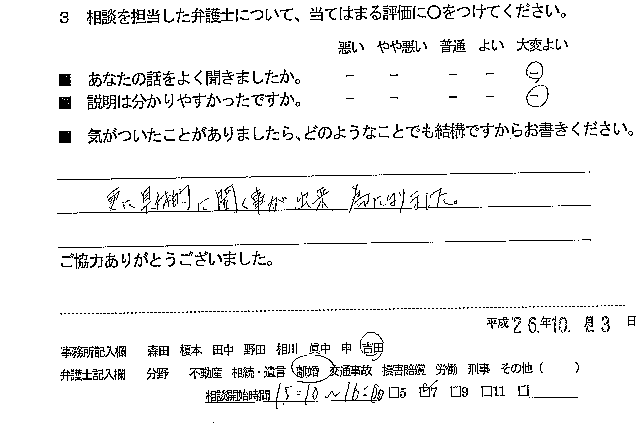 3 相談を担当した弁護士について、当てはまる評価に○をつけてください。
悪い やや悪い 普通 よい 大変よい
■ あなたの話をよく聞きましたか。 － － － － －
■ 説明は分かりやすかったですか。 － － － － －
■ 気がついたことがありましたら、どのようなことでも結構ですからお書きください。
更に具体的に聞く事が出来 為になりました。
ご協力ありがとうございました。
平成 26.年10. 23 日
事務所記入欄 森田 榎本 田中 野田 相川 眞中 申 吉田
弁護士記入欄 分野 不動産 相続・遺言 離婚 交通事故 損害賠償 労働 刑事 その他（ ）
相談開始時間 15:10～16:00 □5 □7 □9 □11 □